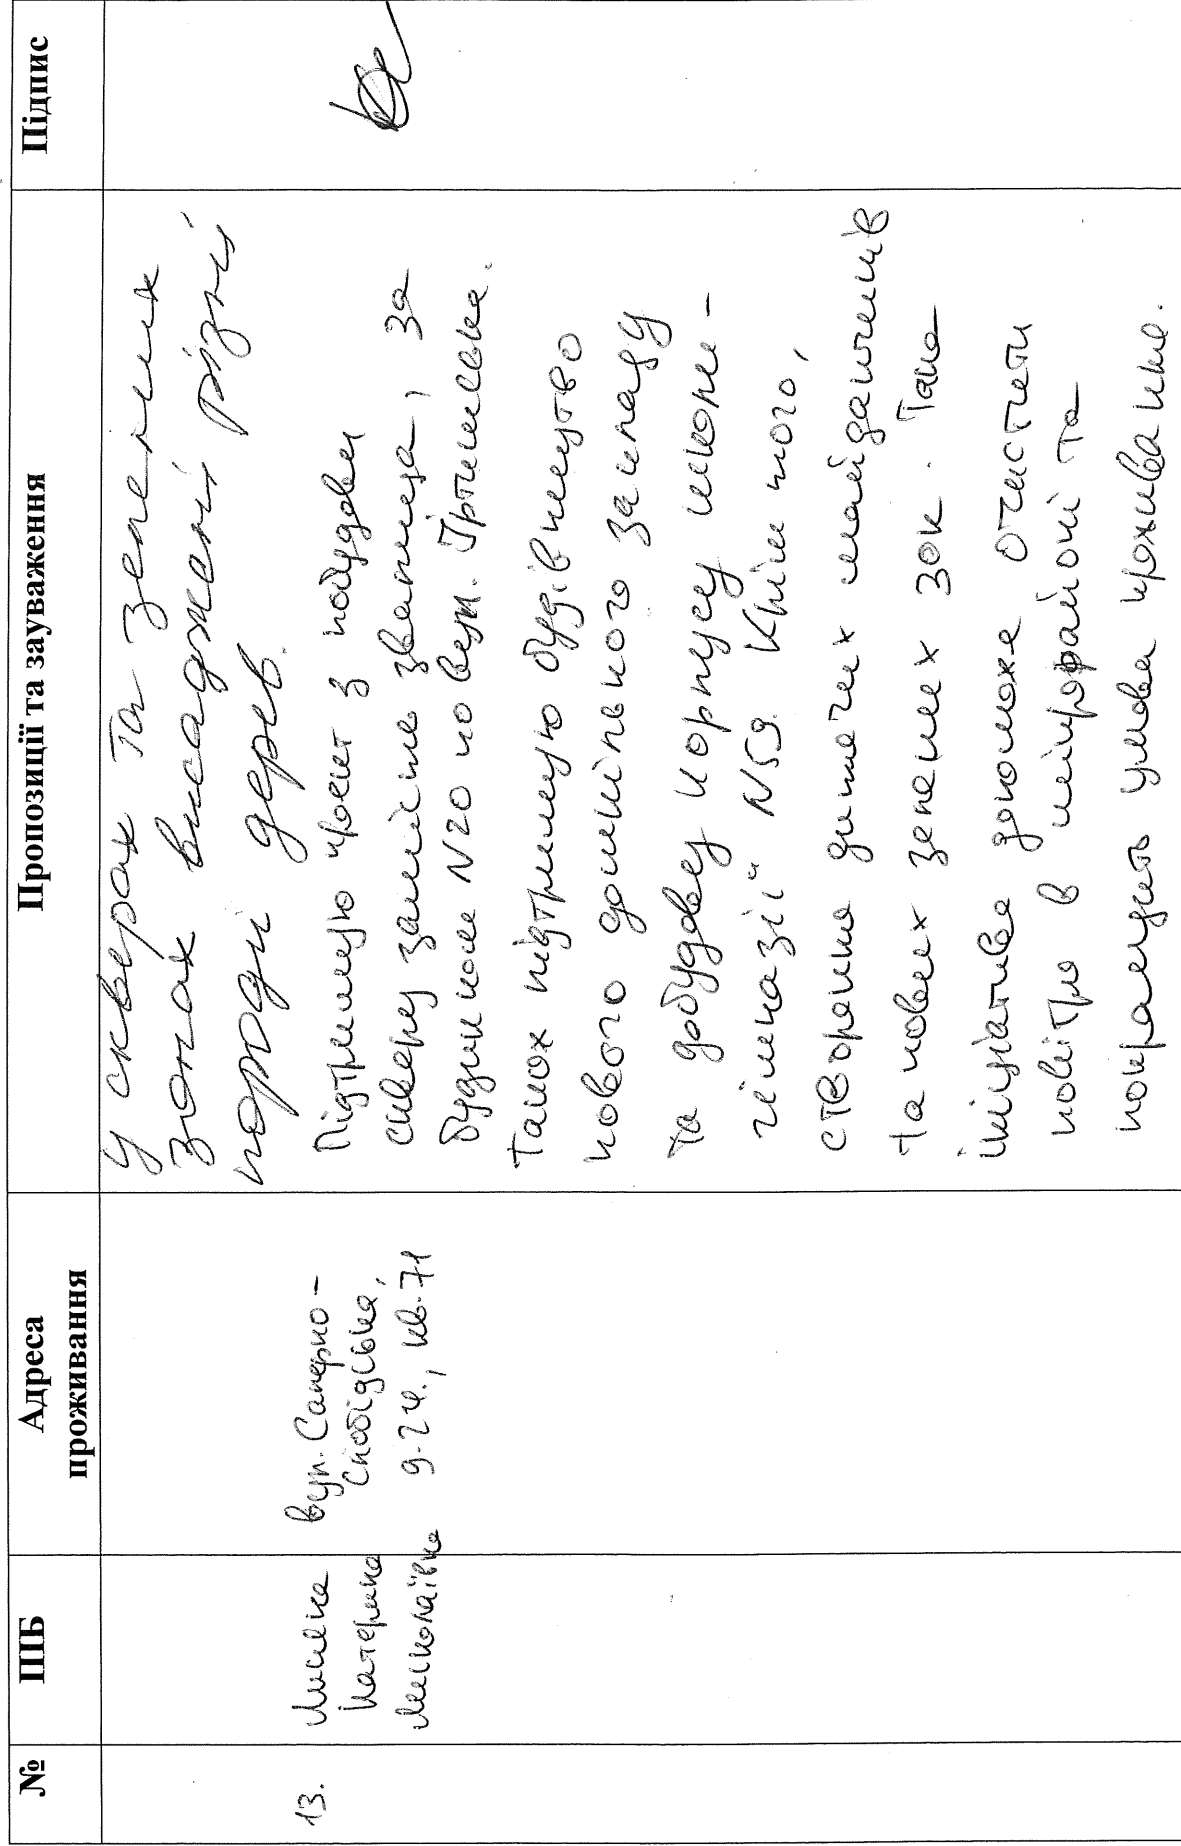 №
ПІБ
Адреса
проживання
Пропозиції та зауваження
Підпис
у скверах та зелених
зонах висаджані різні
породи дерев.
13.
Катерина
Миколаївна
вул. Саперно-
Слобідська,
д.24, кв.71
Підтримую проект з побудови
скверу замість звалища, за
будинком №20 по вул.
Також підтримую будівництво
нового дошкільного закладу
та добудову корпусу школи-
гімназії №59. Крім того,
створення дитячих майданчиків
та нових зелених зон. Така
ініціатива допоможе очистити
повітря в мікрорайоні та
покращить умови проживання.